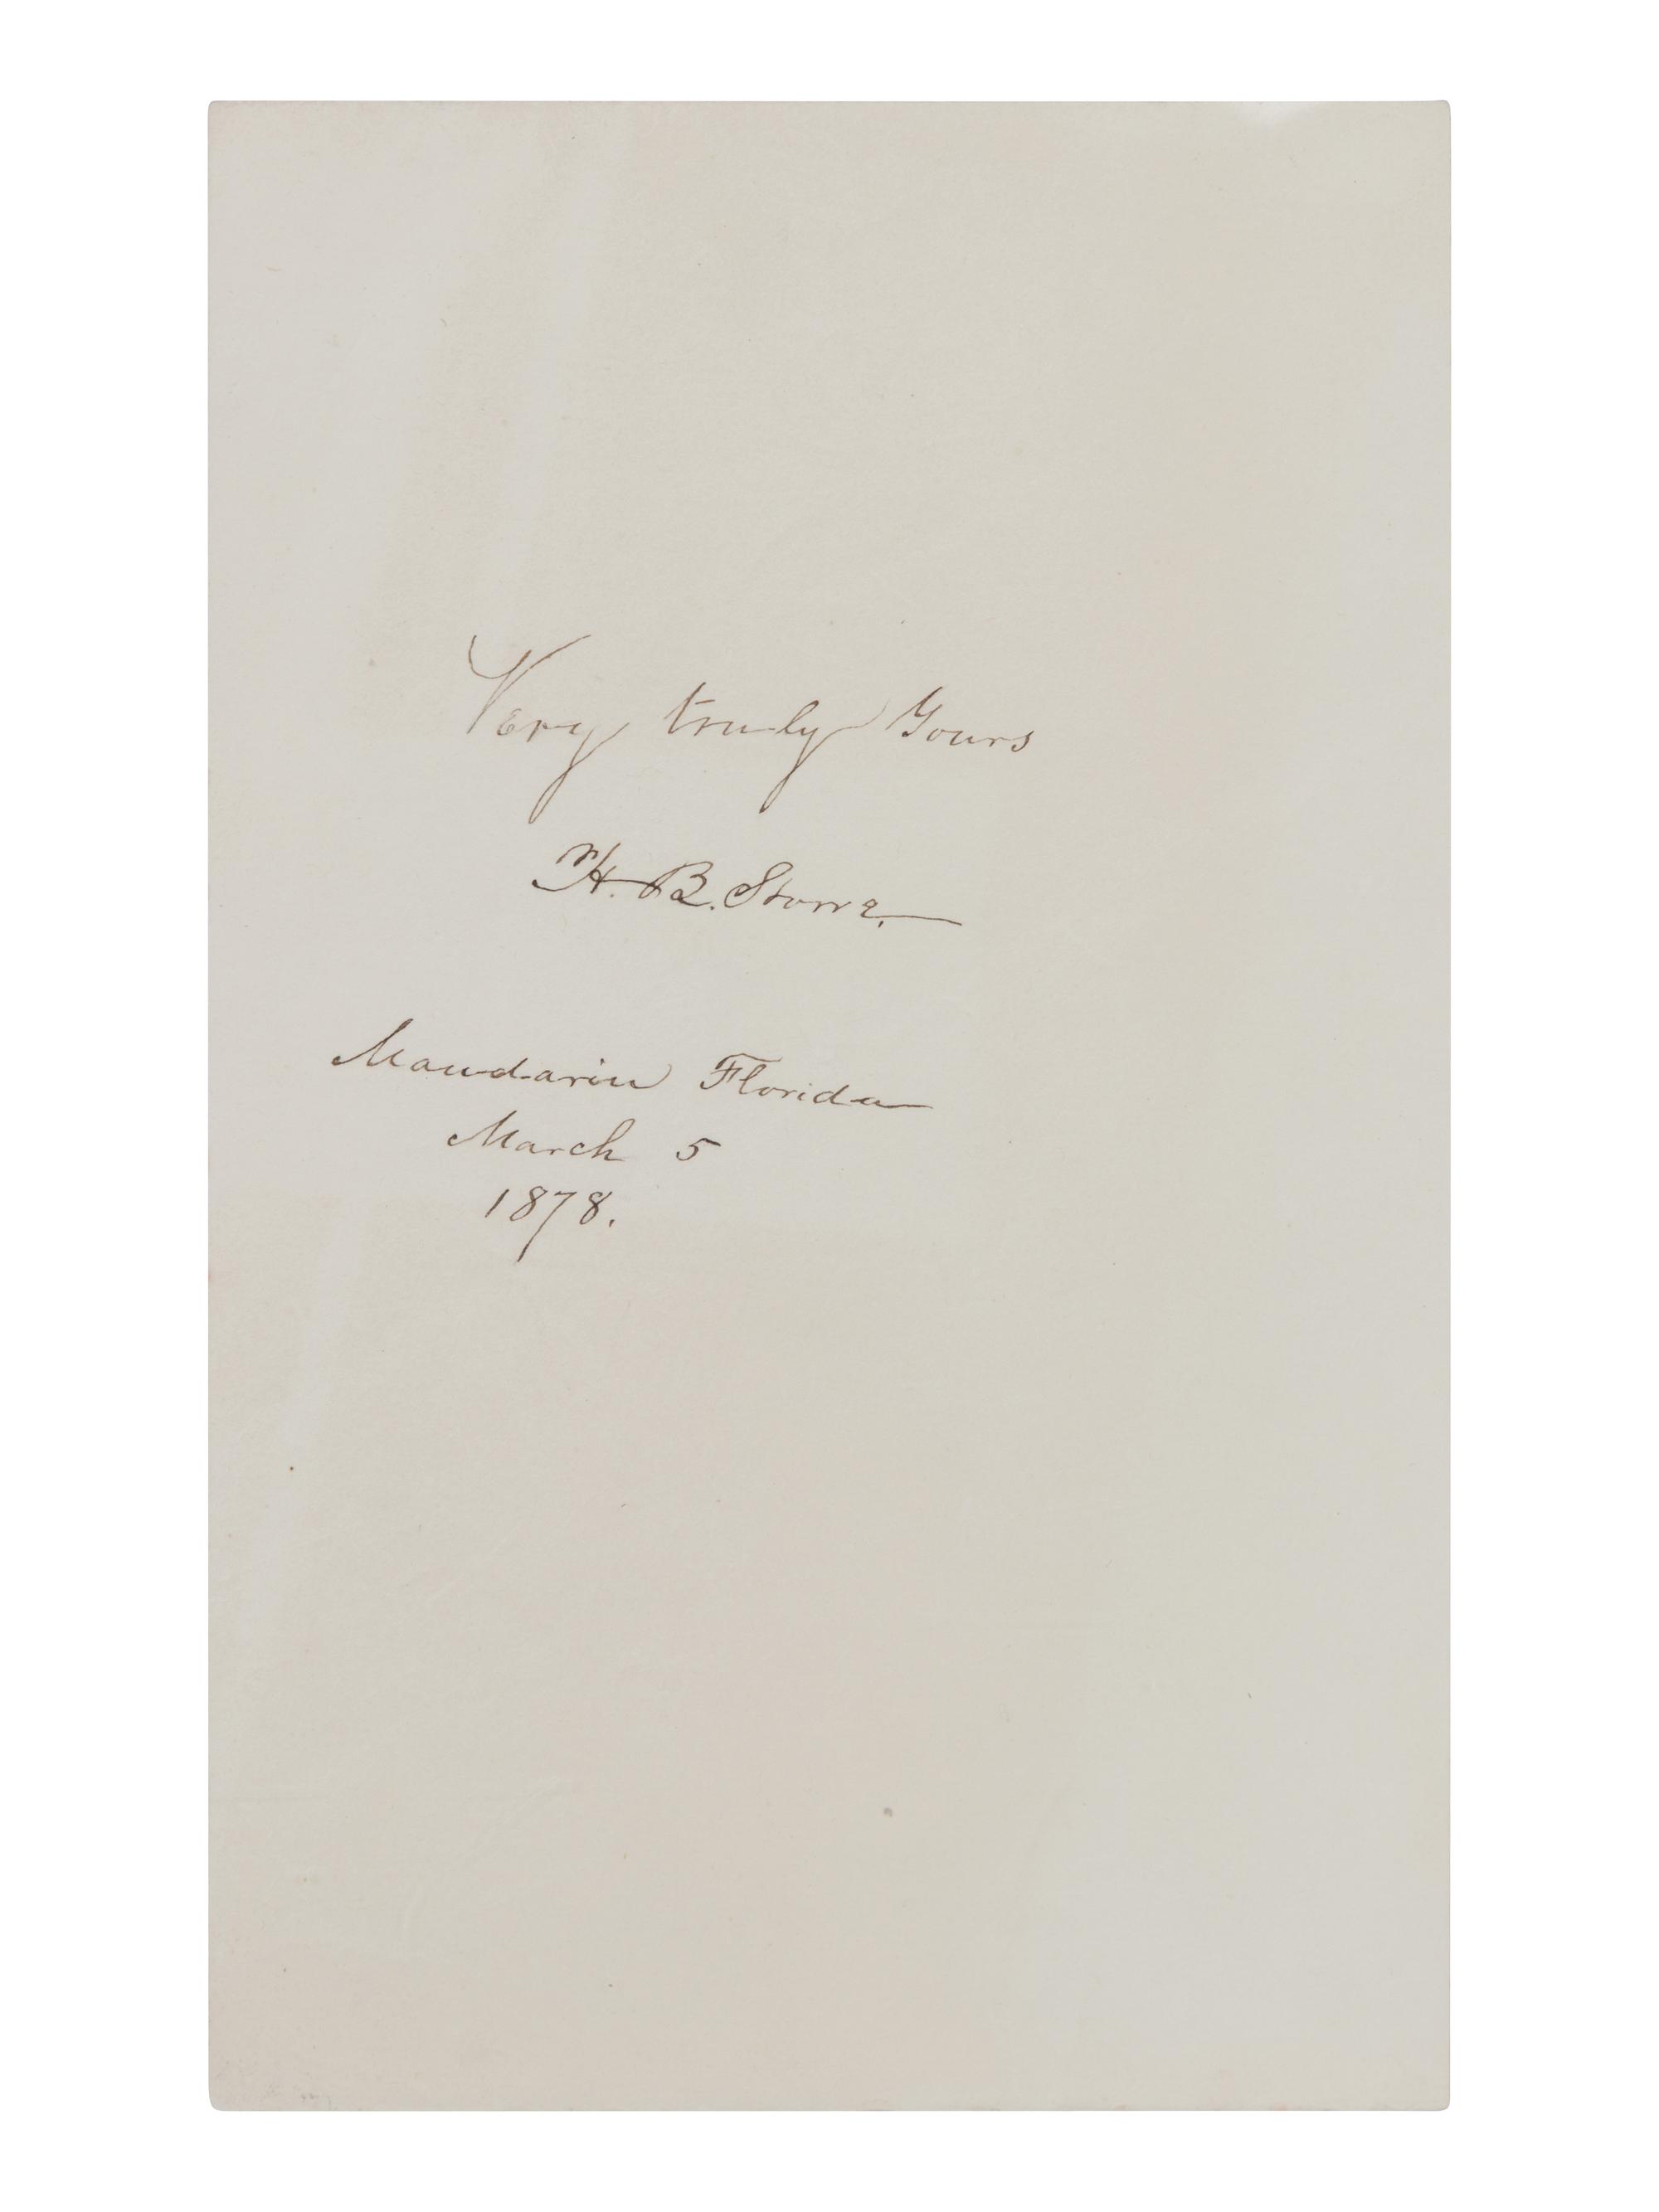 Very truly Yours
H. B. Stowe.
Mandarin Florida
March 5
1878.